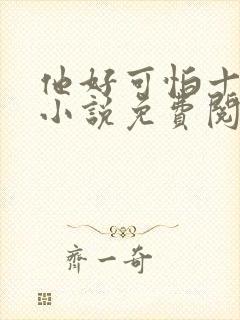 他好可怕十
小说免費閱
齊一奇